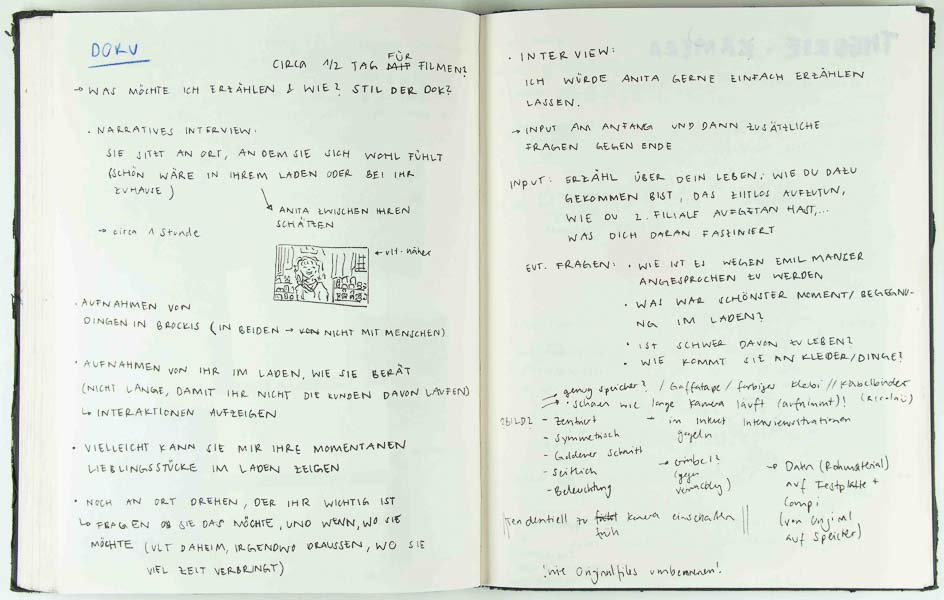 DOKU
CIRCA 1/2 TAG MIT FÜR FILMEN?
→ WAS MÖCHTE ICH ERZÄHLEN & WIE? STIL DER DOK?
• NARRATIVES INTERVIEW:
SIE SITZT AN ORT, AN DEM SIE SICH WOHL FÜHLT
(SCHÖN WÄRE IN IHREM LADEN ODER BEI IHR
ZUHAUSE)
ANITA ZWISCHEN IHREN
SCHÄTZEN
→ circa 1 Stunde
← vlt. näher
• AUFNAHMEN VON
DINGEN IN BROCKIS (IN BEIDEN → VON NICHT MIT MENSCHEN)
• AUFNAHMEN VON IHR IM LADEN, WIE SIE BERÄT
(NICHT LANGE, DAMIT IHR NICHT DIE KUNDEN DAVON LAUFEN)
↳ INTERAKTIONEN AUFZEIGEN
• VIELLEICHT KANN SIE MIR IHRE MOMENTANEN
LIEBLINGSSTÜCKE IM LADEN ZEIGEN
• NOCH AN ORT DREHEN, DER IHR WICHTIG IST
↳ FRAGEN OB SIE DAS MÖCHTE, UND WENN, WO SIE
MÖCHTE (VLT DAHEIM, IRGENDWO DRAUSSEN, WO SIE
VIEL ZEIT VERBRINGT)
• INTERVIEW:
ICH WÜRDE ANITA GERNE EINFACH ERZÄHLEN
LASSEN.
→ INPUT AM ANFANG UND DANN ZUSÄTZLICHE
FRAGEN GEGEN ENDE
INPUT: ERZÄHL ÜBER DEIN LEBEN. WIE DU DAZU
GEKOMMEN BIST, DAS ZIITLOS AUFZUTUN,
WIE DU 2. FILIALE AUFGETAN HAST,...
WAS DICH DARAN FASZINIERT
EVT. FRAGEN: • WIE IST ES WEGEN EMIL MANSER
ANGESPROCHEN ZU WERDEN
• WAS WAR SCHÖNSTER MOMENT/BEGEGNU-
NG IM LADEN?
• IST SCHWER DAVON ZU LEBEN?
• WIE KOMMT SIE AN KLEIDER/DINGE?
→ genug speicher? / Gaffatape / farbiges Klebi // Kabelbinder
→ • schauen wie lange Kamera läuft (aufnimmt)! (Ricolaü)
BILD? - Zentriert
- Symmetrisch
- Goldener Schnitt
- Seitlich
- Beleuchtung
→ in Interviewsituationen
pegeln
→ Gimbel?
(gegen
→ Daten (Rohmaterial)
auf Festplatte +
Compi
(von Original
auf Speicher)
|| Tendentiell zu früh Kamera einschalten ||
! nie Originalfiles umbenennen!
THEORIE - KAMERA